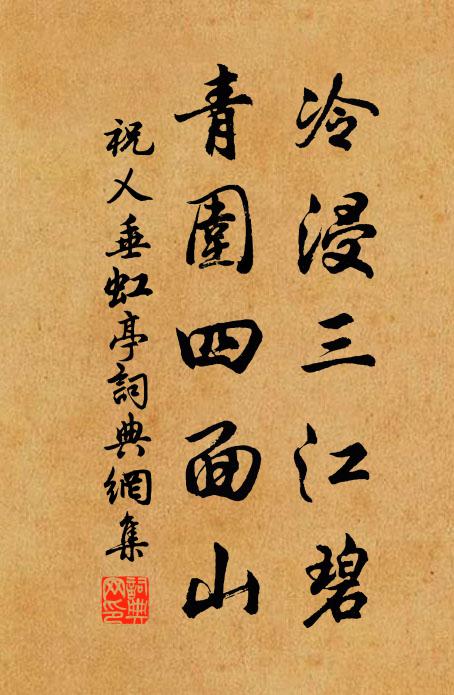 冷浸三江碧
青圍四面山
祝乂垂虹亭詞典網集
詞典网印